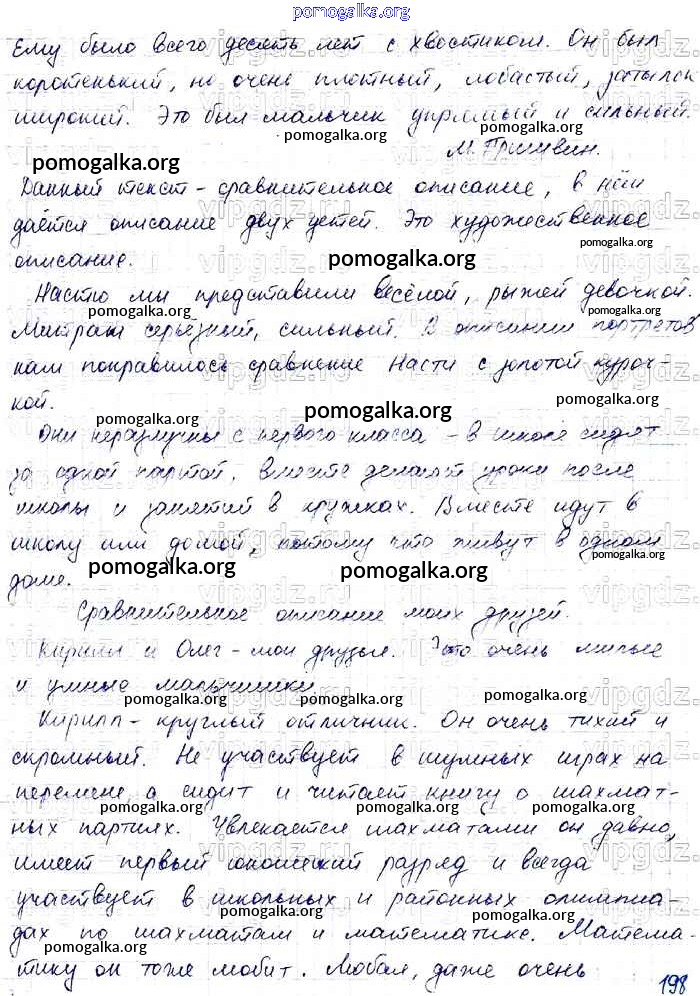 pomogalka.org
Ему было всего десять лет с хвостиком. Он был
коротенький, но очень плотный, лобастый, затылок
широкий. Это был мальчик упрямый и сильный.
pomogalka.org pomogalka.org
pomogalka.org М. Пришвин.
Данный текст - сравнительное описание, в нём
даётся описание двух детей. Это художественное
описание. pomogalka.org pomogalka.org
Настю мы представили весёлой, рыжей девочкой.
pomogalka.org pomogalka.org
Митраш серьёзный, сильный. В описании портретов
нам понравилось сравнение Насти с золотой куроч-
кой.
pomogalka.org pomogalka.org pomogalka.org
Они неразлучны с первого класса - в школе сидят
за одной партой, вместе делают уроки после
школы и занятий в кружках. Вместе идут в
школу или домой, потому что живут в одном
доме. pomogalka.org pomogalka.org pomogalka.org
Сравнительное описание моих друзей.
Кирилл и Олег - мои друзья. Это очень милые
и умные мальчишки.
pomogalka.org pomogalka.org pomogalka.org
Кирилл - круглый отличник. Он очень тихий и
скромный. Не участвует в шумных играх на
перемене, а сидит и читает книгу о шахмат-
pomogalka.org pomogalka.org pomogalka.org
ных партиях. Увлекается шахматами он давно,
имеет первый юношеский разряд и всегда
участвует в школьных и районных олимпиа-
pomogalka.org
дах по шахматам и математике. Матема-
pomogalka.org pomogalka.org
тику он тоже любит. Любая, даже очень
198
vipgdz.ru